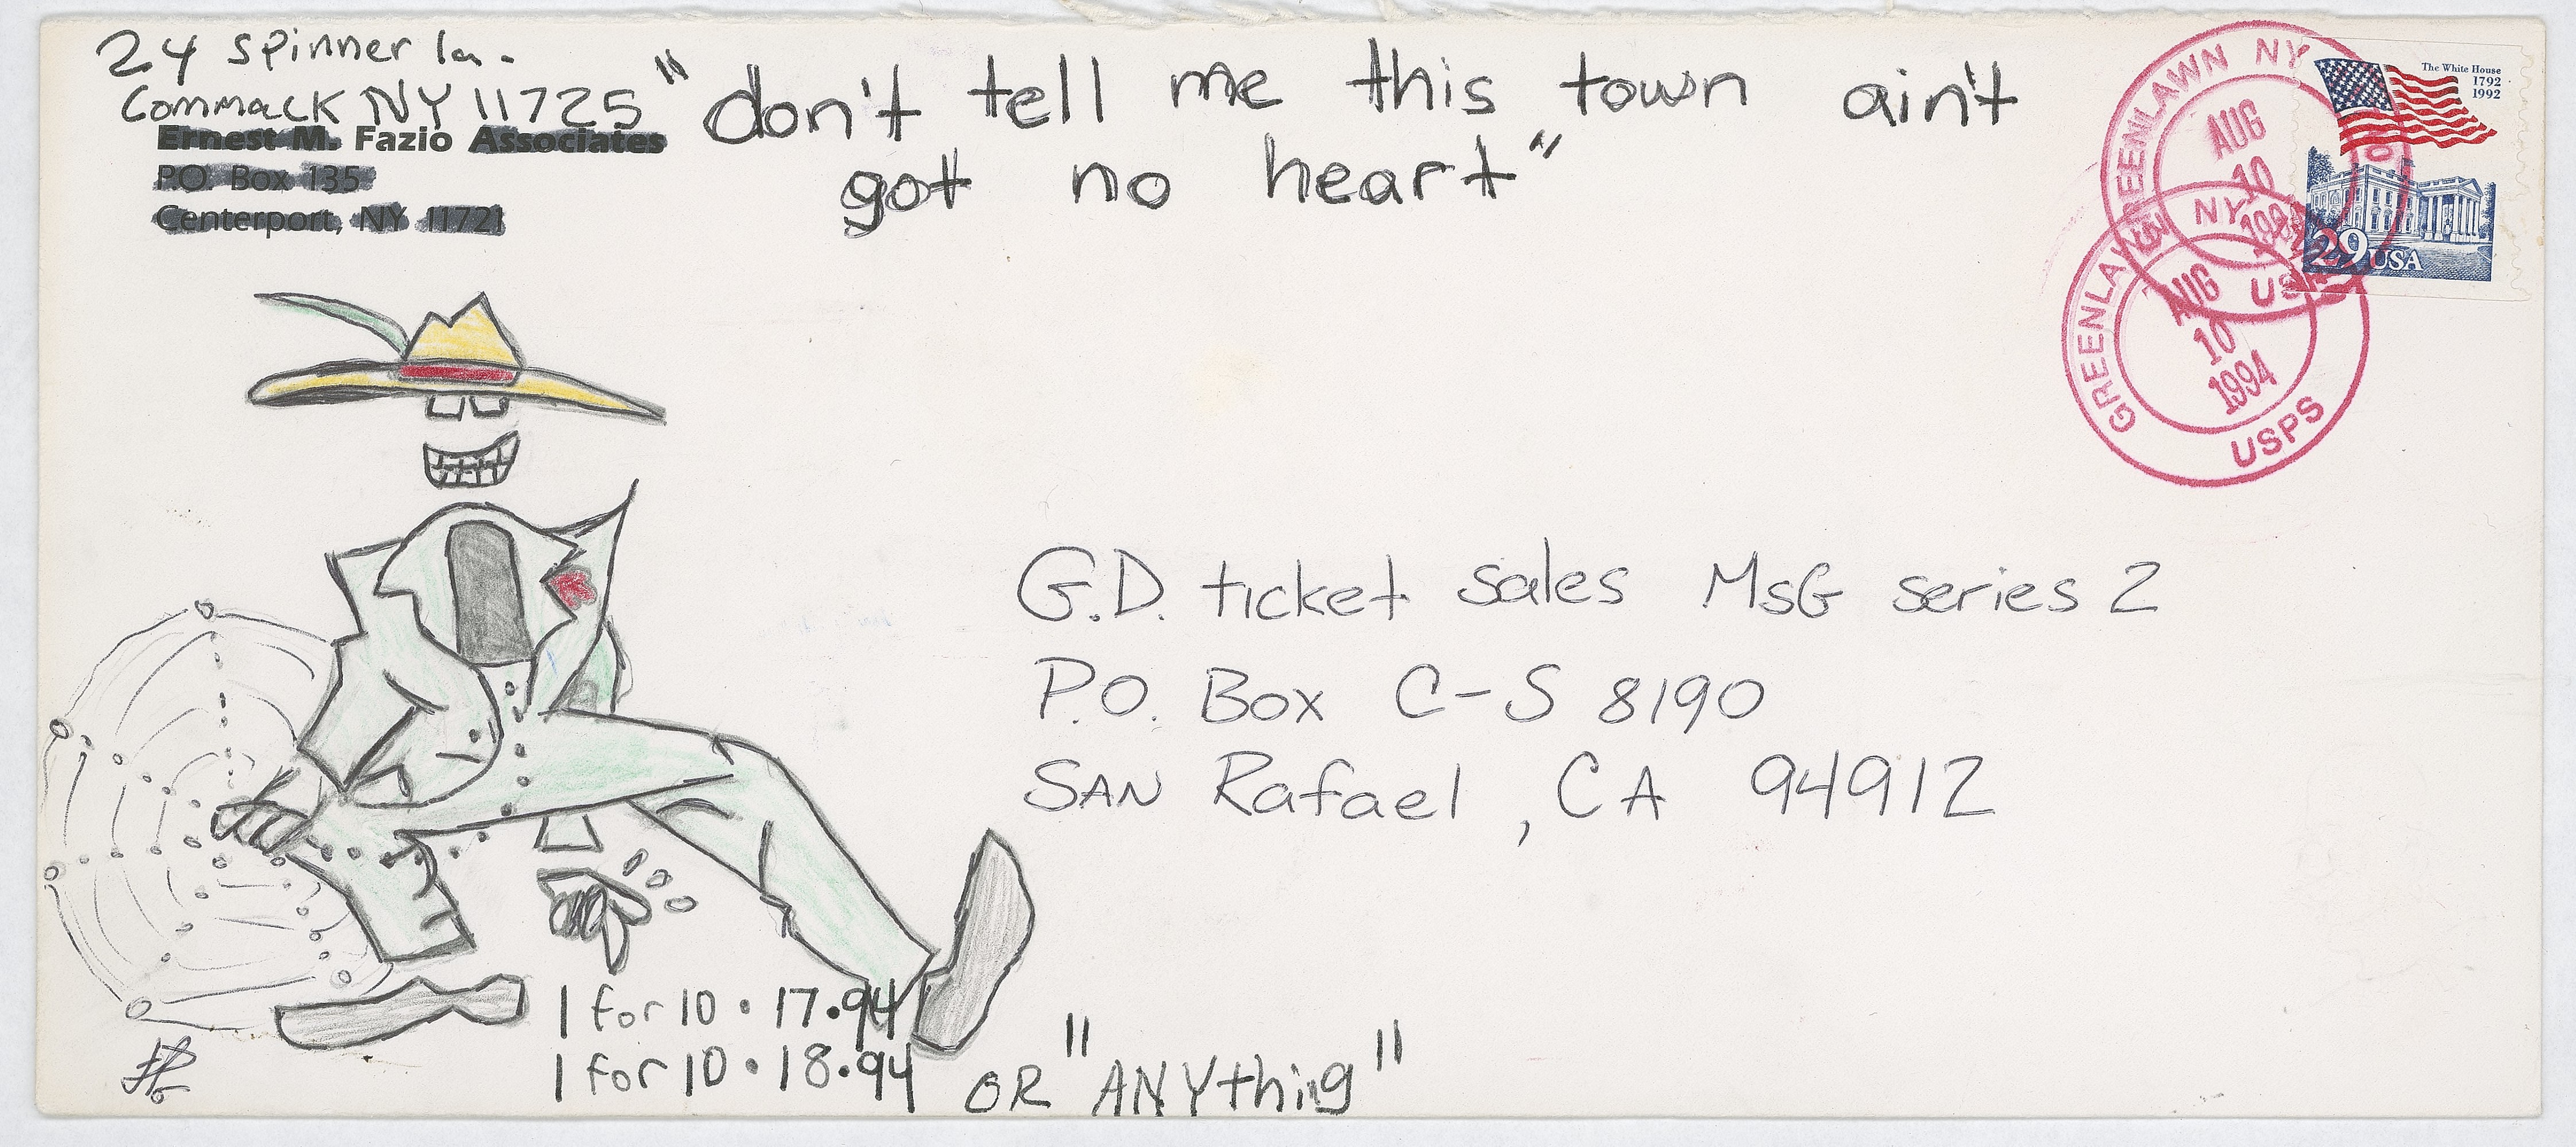 24 Spinner la.
Commack NY 11725
Ernest M. Fazio Associates
P.O. Box 135
Centerport, NY 11721
"don't tell me this town ain't
got no heart"
The White House
1792
1992
29 USA
GREENLAWN NY
AUG
10
1994
USPS
GREENLAWN NY
AUG
10
1994
USPS
G.D. ticket sales MSG series 2
P.O. Box C-S 8190
SAN Rafael, CA 94912
1 for 10 • 17.94
1 for 10 • 18.94 OR "ANYthing"